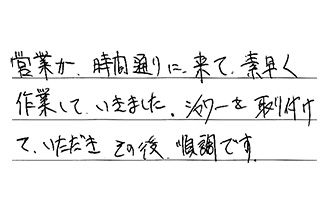 営業が、時間通りに、来て、素早く
作業して、いきました。シャワーを取り付け
て、いただき その後、順調です。